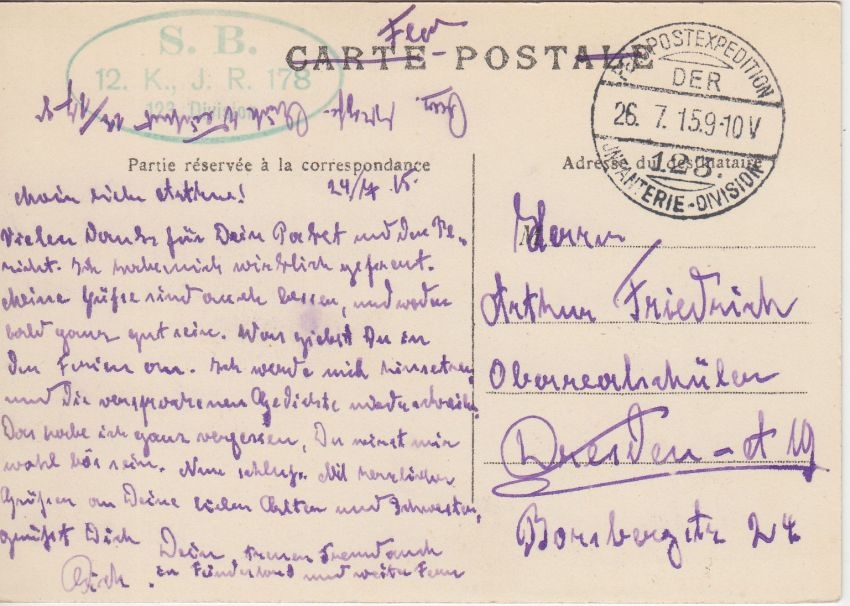 S. B.
12. K., J. R. 178
123. Division
Feld
CARTE POSTALE
FELDPOSTEXPEDITION
DER
26. 7. 15. 9-10 V
123.
INFANTERIE-DIVISION
Partie réservée à la correspondance
Mein lieber Arthur! 24/7 15.
Vielen Dank für Dein Paket und den Be-
richt. Ich habe mich wirklich gefreut.
Meine Füße sind auch besser, und werden
bald ganz gut sein. Was giebst Du in
den Ferien an. Ich werde mich hinsetzen
und die versprochenen Gedichte niederschreiben.
Das habe ich ganz vergessen, Du wirst mir
wohl bös sein. Nun schluß. Mit herzlichen
Grüßen an Deine lieben Eltern und Schwester,
grüßt Dich Dein treuer Freund auch
in Feindesland und weiter Fern
Adresse du destinataire
M
Herrn
Arthur Friedrich
Oberrealschüler
Dresden-A 19
Borsbergstr 24